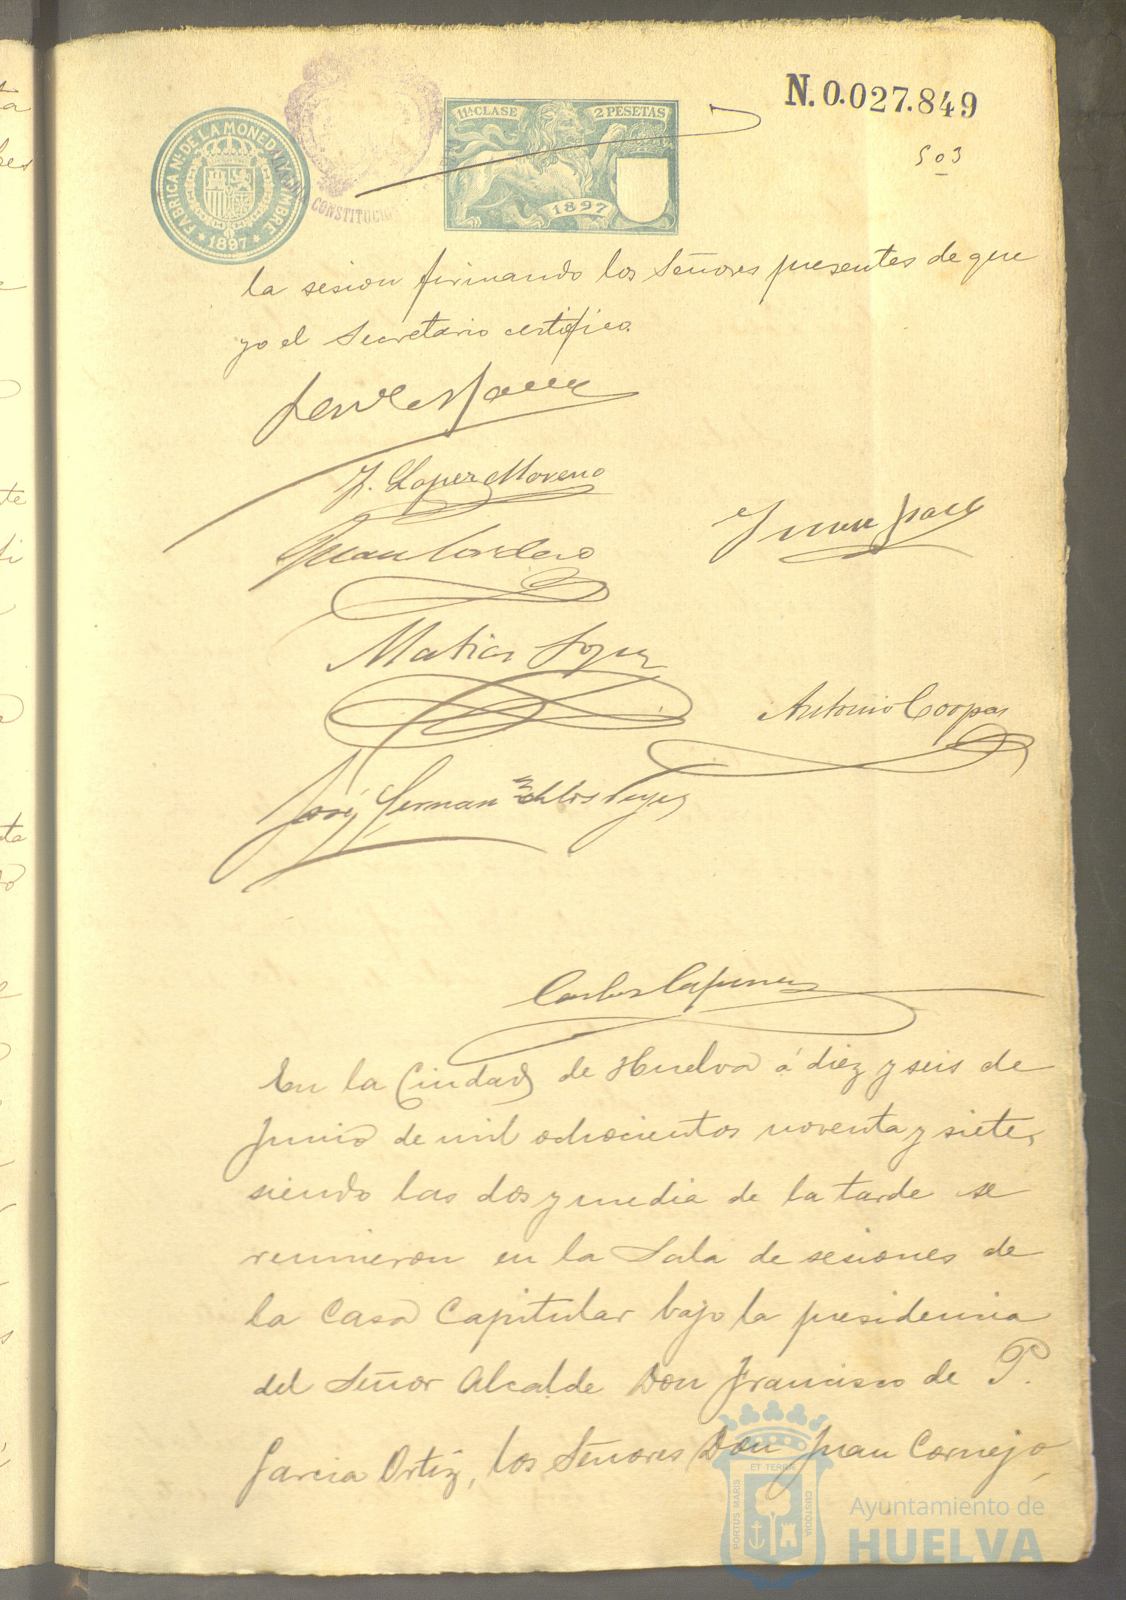 N. 0.027.849
503
FABRICA Nl. DE LA MONEDA Y TIMBRE
* 1897 *
CONSTITUCIO
11ª CLASE 2 PESETAS
1897
la sesion firmando los Señores presentes de que
yo el Secretario certifico.
J. Lopez Moreno
Juan Cordero
Matias Lopez
Antonio Corpas
José Hernanz de los Reyes
Carlos
En la Ciudad de Huelva á diez y seis de
Junio de mil ochocientos noventa y siete,
siendo las dos y media de la tarde se
reunieron en la Sala de sesiones de
la Casa Capitular bajo la presidencia
del Señor Alcalde Don Francisco de P.
Garcia Ortiz, los Señores Don Juan Cornejo,
ET TERRÆ
PORTUS MARIS
CUSTODIA
Ayuntamiento de
HUELVA